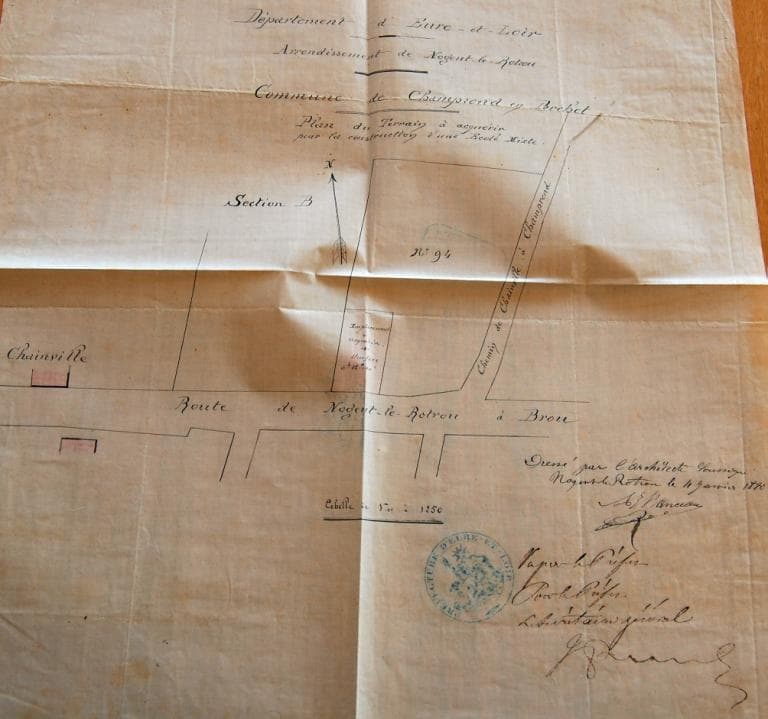 Département d'Eure-et-Loir
Arrondissement de Nogent-le-Rotrou
Commune de Champrond en Perchet
Plan du Terrain à acquérir
pour la construction d'une Ecole Mixte.
N
Section B
Nº 94
Chemin de Chainville à Champrond
Emplacement
à
acquérir
Surface
Chainville
Route de Nogent-le-Rotrou à Brou
Dressé par l'architecte soussigné
Nogent-le-Rotrou le 4 Janvier
Echelle de 1 à 1250
PREFECTURE D'EURE-ET-LOIR
Vu par le Préfet
Pour le Préfet
Le Secrétaire général